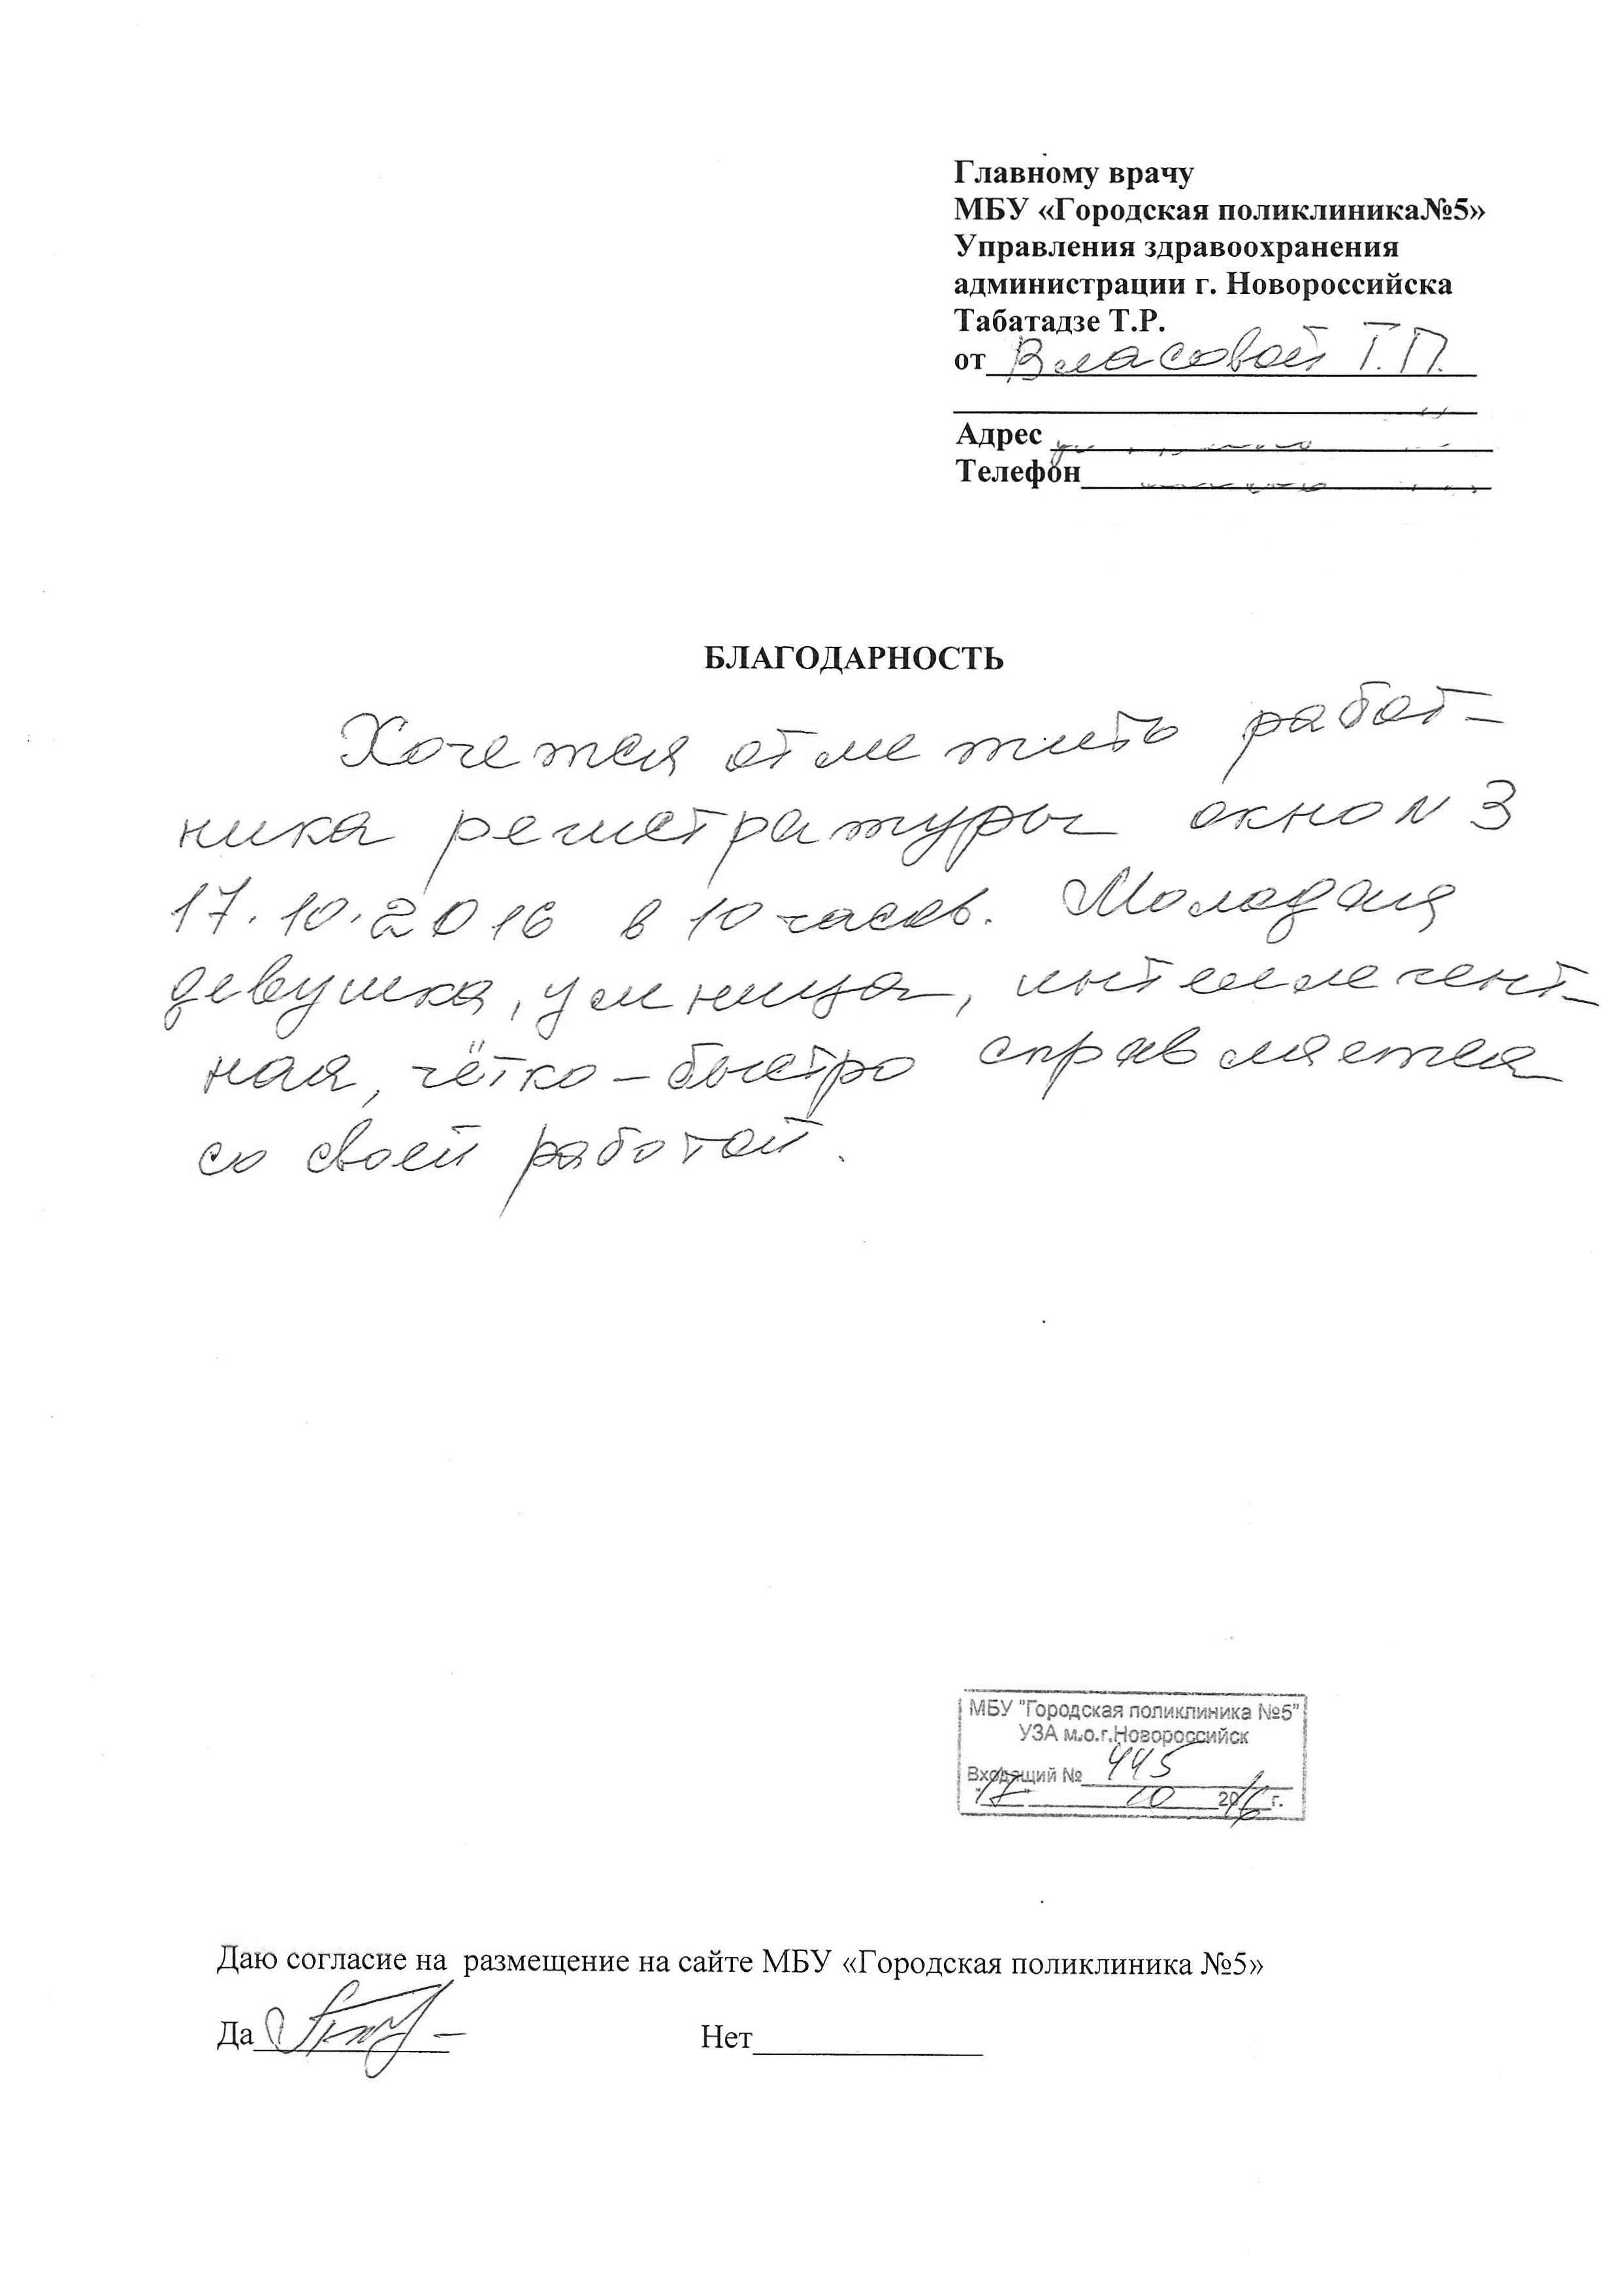 Главному врачу
МБУ «Городская поликлиника№5»
Управления здравоохранения
администрации г. Новороссийска
Табатадзе Т.Р.
от Власовой Т.П.
Адрес
Телефон
БЛАГОДАРНОСТЬ
Хочется отметить работ-
ника регистратуры окно N 3
17.10.2016 в 10 часов. Молодая
девушка, умница, интеллегент-
ная, чётко – быстро справляется
со своей работой.
МБУ "Городская поликлиника №5"
УЗА м.о.г.Новороссийск
Входящий № 445
"17" 10 2016 г.
Даю согласие на размещение на сайте МБУ «Городская поликлиника №5»
Да Нет